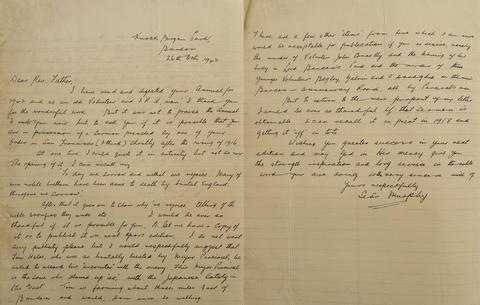 Knock Bandon
26th Oct. 1942
Dear Rev. Father,
I have read and digested your Annual for
1942 and as an old Volunteer and I.R.A. man, I thank you
for the wonderful work. But it was not to praise the Annual
I write you now but to ask you if it is possible that you
are in possession of a sermon preached by one of your
in San Francisco (I think) shortly after the rising of 1916
At one time I could quote it in entirety but not so now
The opening of it, I can recall viz.
"To-day we sorrow and withal we rejoice. Many of
our noble brothers have been done to death by brutal England.
therefore we sorrow".
After that it goes on to show why "we rejoice" telling of the
noble sacrifice they made etc. I would be ever so
thankful if it is possible for you to let me have a copy of
it or to publish it in next year's edition. I do not want
any publicity please but I would respectfully suggest that
Tom Hales, who was so brutally treated by Major Percival, be
asked to record his encounter with the enemy. This Major Percival
is the same who showed up so with the Japanese lately in
the East. Tom is farming about three miles East of
Bandon and would, I am sure, be willing.
There are a few other "items" from here which I am sure
would be acceptable for publication if you so desire, namely
the murder of Volunteer John Connolly and the burning of his
body in Lord Bandon's and the murder of three
younger Volunteers Begley, Galvin and O'Donoghue on the
Bandon - Road, all by Percival's men
But to return to the main purport of my letter
I would be ever so thankful if that sermon is
obtainable. I can recall it in print in 1918 and
getting it "off" in toto.
Wishing you greater success in your next
edition and may God in His Mercy give you
the strength inspiration and long service in the noble
work you are doing
Yours respectfully
Seán Murphy